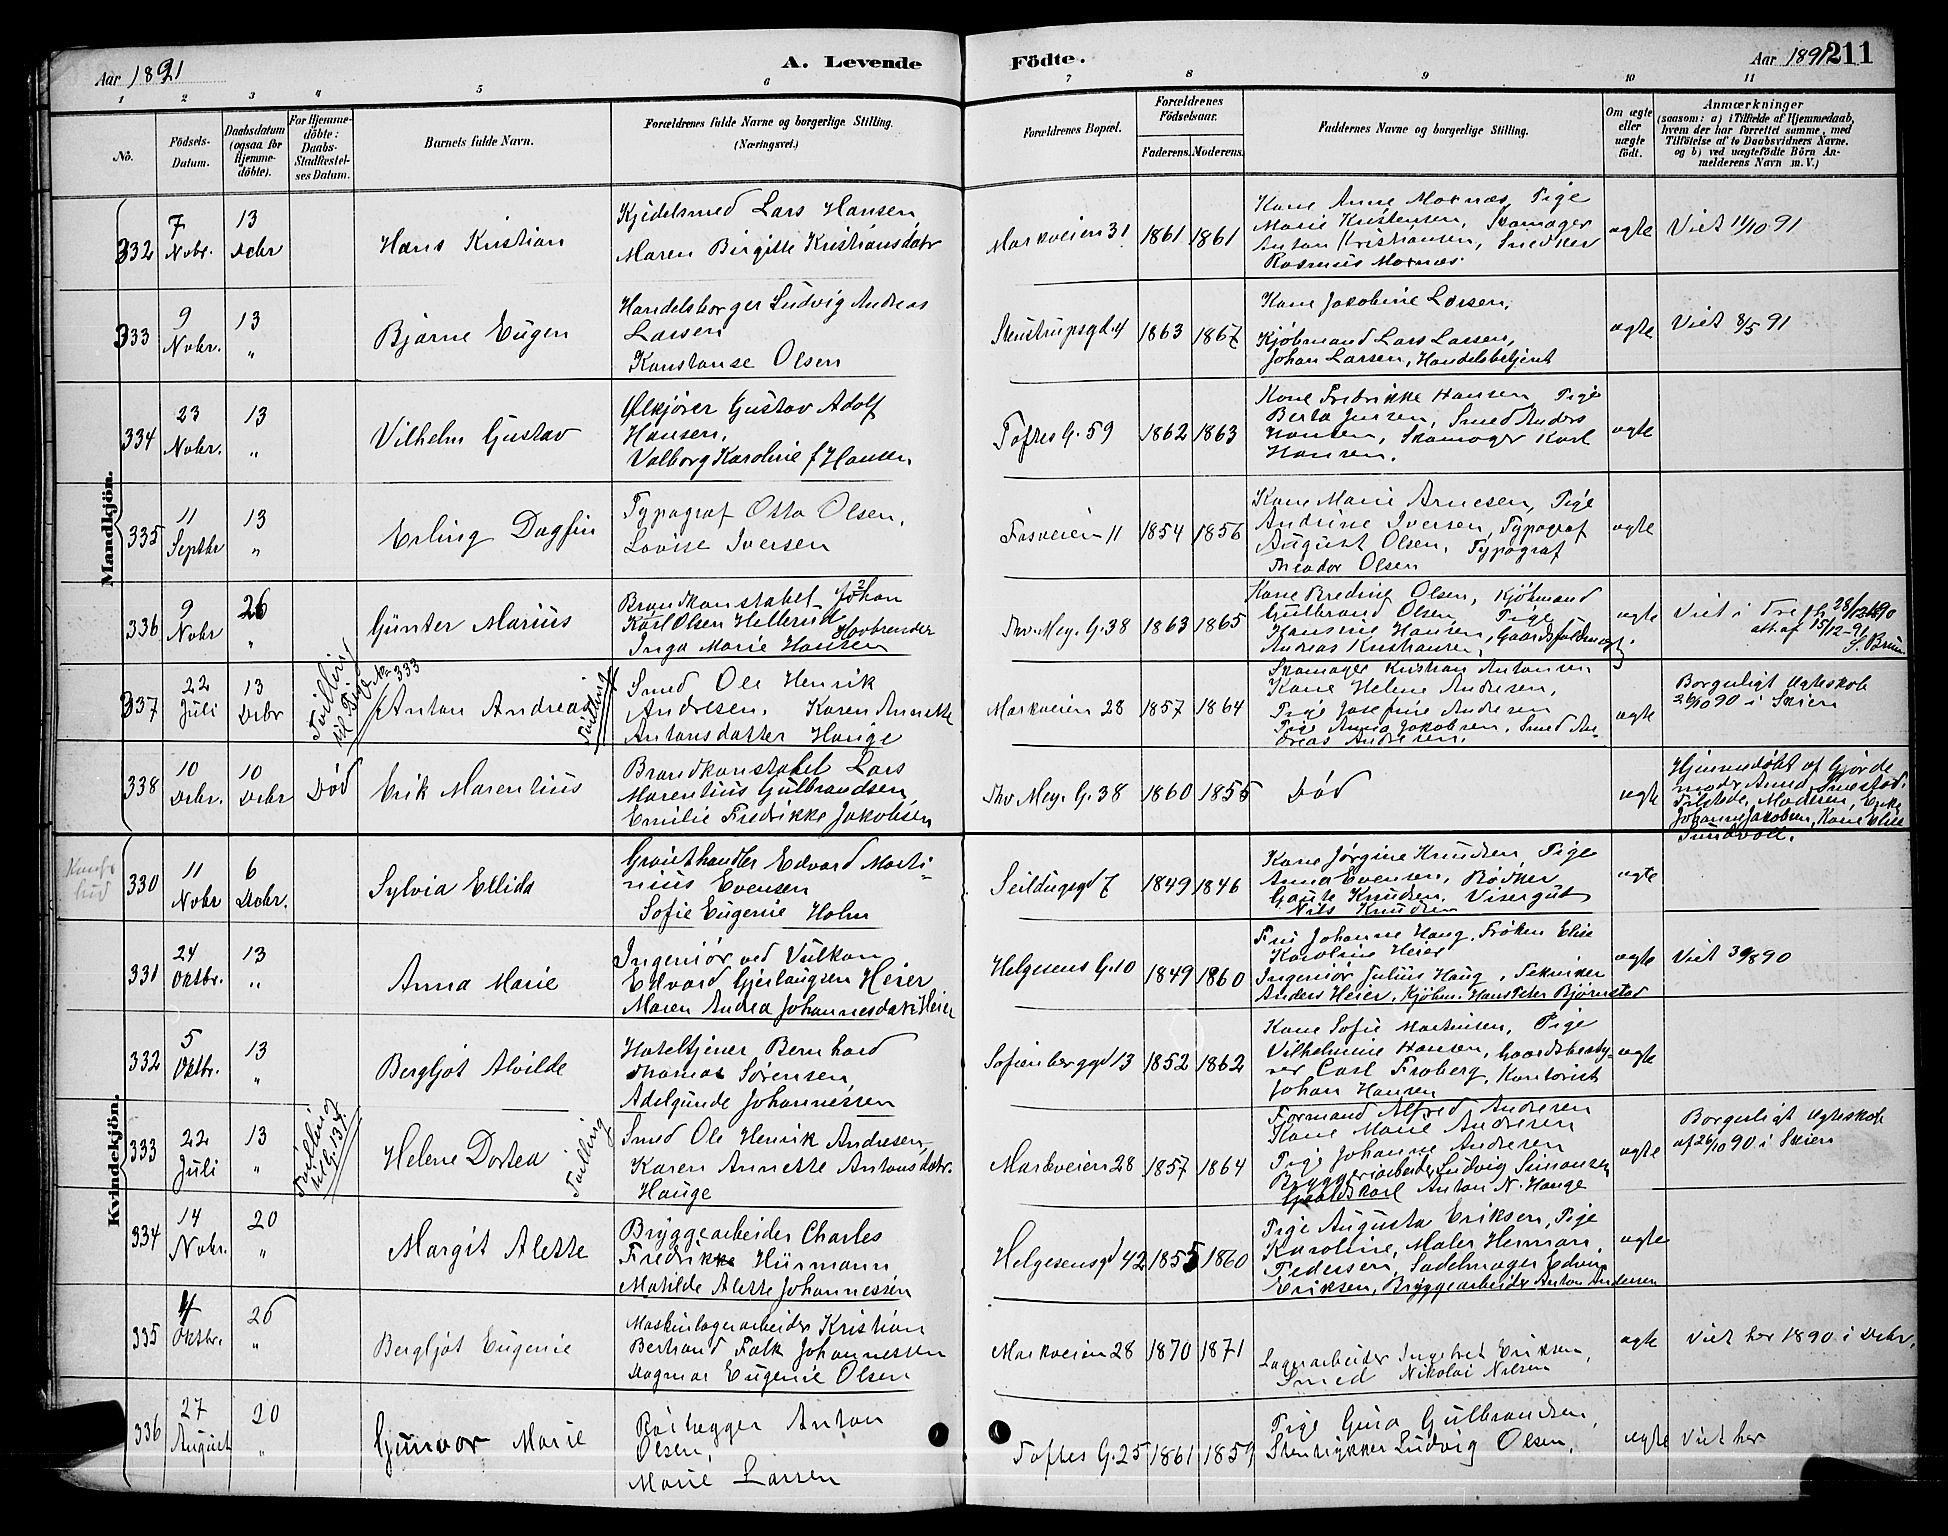 Aar 1891
A. Levende
Födte.
Aar 1891
211
1 2 3 4 5 6 7 8 9 10 11
No.
Födsels-Datum.
Daabsdatum (ogsaa för Hjemme-döbte).
For Hjemme-döbte: Daabs-Stadfæstel-ses Datum.
Barnets fulde Navn.
Forældrenes fulde Navne og borgerlige Stilling. (Næringsvei.)
Forældrenes Bopæl.
Forældrenes Födselsaar.
Faderens. Moderens.
Faddernes Navne og borgerlige Stilling.
Om ægte eller uægte födt.
Anmærkninger
(saasom: a) i Tilfælde af Hjemmedaab, hvem der har forrettet samme, med Tilföielse af to Daabsvidners Navne. og b) ved uægtefödte Börn An-melderens Navn m. V.)
Mandkjön.
332
7 Nobr.
13 Decbr
Hans Kristian
Kjedelsmed Lars Hansen
Maren Birgitte Kristiansdatr
Markveien 31
1861 1861
Kone Anne Moxnæs, Pige
Marie Kristensen, Skomager
Anton Kristiansen, Snedker
Rasmus Moxnæs
ægte
Viet 11/10 91
333
9 Nobr.
13 "
Bjarne Eugen
Handelsborger Ludvig Andreas
Larsen
Konstanse Olsen
Steustrupsgd. 4
1863 1867
Kone Jakobine Larsen,
Kjøbmand Lars Larsen,
Johan Larsen, Handelsbetjent
ægte
Viet 8/5 91
334
23 Nobr.
13 "
Vilhelm Gustav
Ølkjører Gustav Adolf
Hansen,
Valborg Karoline f Hansen
Toftes G. 59
1862 1863
Kone Fredrikke Hansen, Pige
Berta Jensen, Smed Anders
Hansen, Skomager Karl
Hansen.
ægte
335
11 Septbr
13 "
Erling Dagfin
Typograf Otto Olsen,
Lovise Iversen
Fosveien 11
1854 1856
Kone Marie Arnesen, Pige
Andrine Iversen, Typograf
August Olsen, Typograf
Theodor Olsen
ægte
336
9 Nobr
26 "
Günter Marius
Brandkonstabel Johan
Karl Olsen Hellerud
Inga Marie Hansen
Thv. Mey. G. 38
1863 1865
Kone Olsen, Kjøbmand
Gulbrand Olsen, Pige
Hansine Hansen, Gaardsfuldmægt.
Andreas Kristiansen,
ægte
Viet i
att. af 15/12-91
337
22 Juli
13 Decbr
Tvilling til Pige No 333
Anton Andreas
Tvilling
Smed Ole Henrik
Andresen, Karen Annette
Antonsdatter Hauge
Markveien 28
1857 1864
Skomager Kristian Antonsen
Kone Helene Andresen,
Pige Josefine Andresen
Pige Anna Jakobsen, Smed An-
dreas Andresen.
ægte
Borgerligt Ægteskab
26/10 90 i Skien
338
10 Decbr.
10 Decbr
Død
Erik Marentius
Brandkonstabel Lars
Marentius Gulbrandsen,
Emilie Fredrikke Jakobsen
Thv. Mey. G. 38
1860 1855
Død
ægte
Hjemmedøbt af Gjorde
moder Anna Smestad.
Tilstede, Moderen, Enke
Johanne Jakobsen, Kone Elise
Sundvoll.
Kvindekjön.
330
11 Nobr
6 Decbr.
Sylvia Elida
Grønthandler Edvard Marti-
nius Evensen
Sofie Eugenie Holm
Seildugsgd 7
1849 1846
Kone Jørgine Knudsen, Pige
Anna Evensen, Bødker
Gaute Knudsen, Visergut
Nils Knudsen
ægte
331
24 Oktbr.
13 "
Anna Marie
Ingeniør ved Vulkan
Edvard Gjerlaugsen Heier
Maren Andrea Johannesdatr Heier
Helgesens G. 10
1849 1860
Fru Johanne Haug, Frøken Elise
Karoline Heier
Ingeniør Julius Haug, Tekniker
Anders Heier, Kjøbm. Hans Peter Bjørnstad
ægte
332
5 Oktbr.
13 "
Bergljot Alvilde
Hoteltjener Bernhard
Thomas Sørensen,
Adelgunde Johannessen
Sofienberggd 13
1852 1862
Kone Sofie Martinsen, Pige
Vilhelmine Hansen, Gaardsbesty-
rer Carl Froberg, Kontorist
Johan Hansen
ægte
333
22 Juli
13 "
Helene Dortea
Tvilling
Smed Ole Henrik Andresen,
Karen Annette Antonsdatr.
Hauge
Markveien 28
1857 1864
Formand Alfred Andresen
Kone Marie Andresen
Pige Johanne Andresen
Bryggeriarbeider Ludvig Simonsen
Gaardskarl Anton N. Hauge
ægte
Borgerligt Ægteskab
af 26/10 90 i Skien
334
14 Nobr.
20 "
Margit Alette
Bryggearbeider Charles
Fredrik Hürmann
Matilde Alette Johannessen
Helgesensgd 42
1855 1860
Pige Augusta Eriksen, Pige
Karoline, Maler Herman
Pedersen, Sadelmager Edvin
Eriksen, Bryggearbeider Anton Andersen
ægte
335
4 Oktbr.
26 "
Bergljot Eugenie
Maskinlagerarbeider Kristian
Bertrand Falk Johannessen
Dagmar Eugenie Olsen
Markveien 28
1870 1871
Lagerarbeider Ingebret Eriksen,
Smed Nikolai Nilsen
ægte
Viet her 1890 i Decbr.
336
27 August
20 "
Gunvor Marie
Rørlægger Anton
Olsen,
Marie Larsen
Toftes G. 25
1861 1859
Pige Gina Gulbrandsen,
Stentrykker Ludvig Olsen,
ægte
Viet her